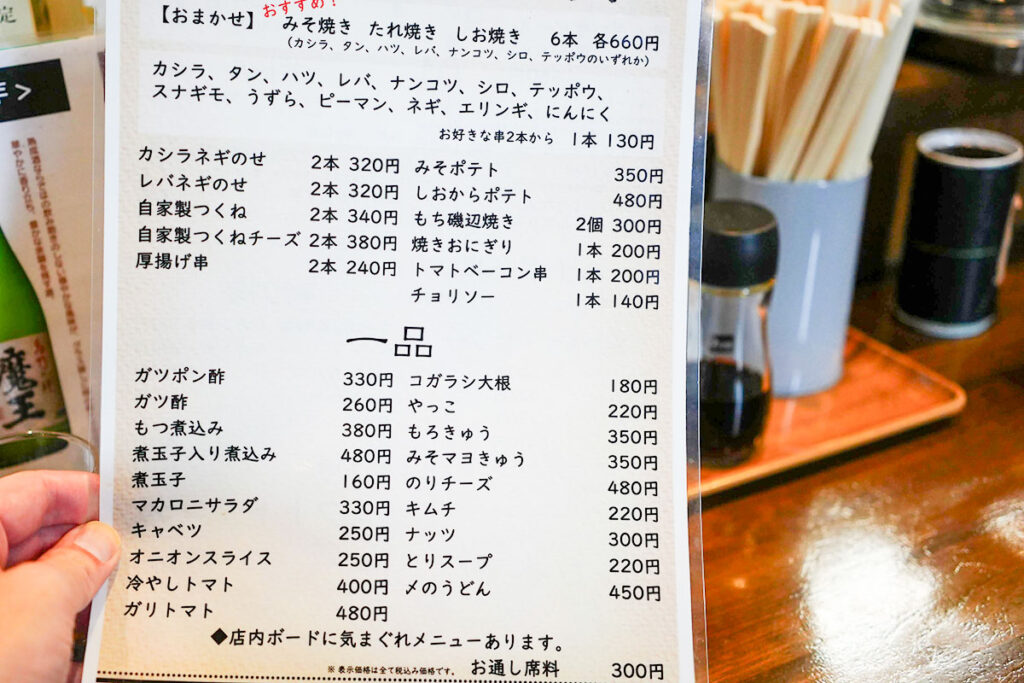 おすすめ！
【おまかせ】 みそ焼き たれ焼き しお焼き 6本 各660円
（カシラ、タン、ハツ、レバ、ナンコツ、シロ、テッポウのいずれか）
カシラ、タン、ハツ、レバ、ナンコツ、シロ、テッポウ、
スナギモ、うずら、ピーマン、ネギ、エリンギ、にんにく
お好きな串2本から 1本 130円
カシラネギのせ 2本 320円
レバネギのせ 2本 320円
自家製つくね 2本 340円
自家製つくねチーズ 2本 380円
厚揚げ串 2本 240円
みそポテト 350円
しおからポテト 480円
もち磯辺焼き 2個 300円
焼きおにぎり 1本 200円
トマトベーコン串 1本 200円
チョリソー 1本 140円
一品
ガツポン酢 330円
ガツ酢 260円
もつ煮込み 380円
煮玉子入り煮込み 480円
煮玉子 160円
マカロニサラダ 330円
キャベツ 250円
オニオンスライス 250円
冷やしトマト 400円
ガリトマト 480円
コガラシ大根 180円
やっこ 220円
もろきゅう 350円
みそマヨきゅう 350円
のりチーズ 480円
キムチ 220円
ナッツ 300円
とりスープ 220円
〆のうどん 450円
◆店内ボードに気まぐれメニューあります。
※表示価格は全て税込み価格です。 お通し席料 300円
魔王